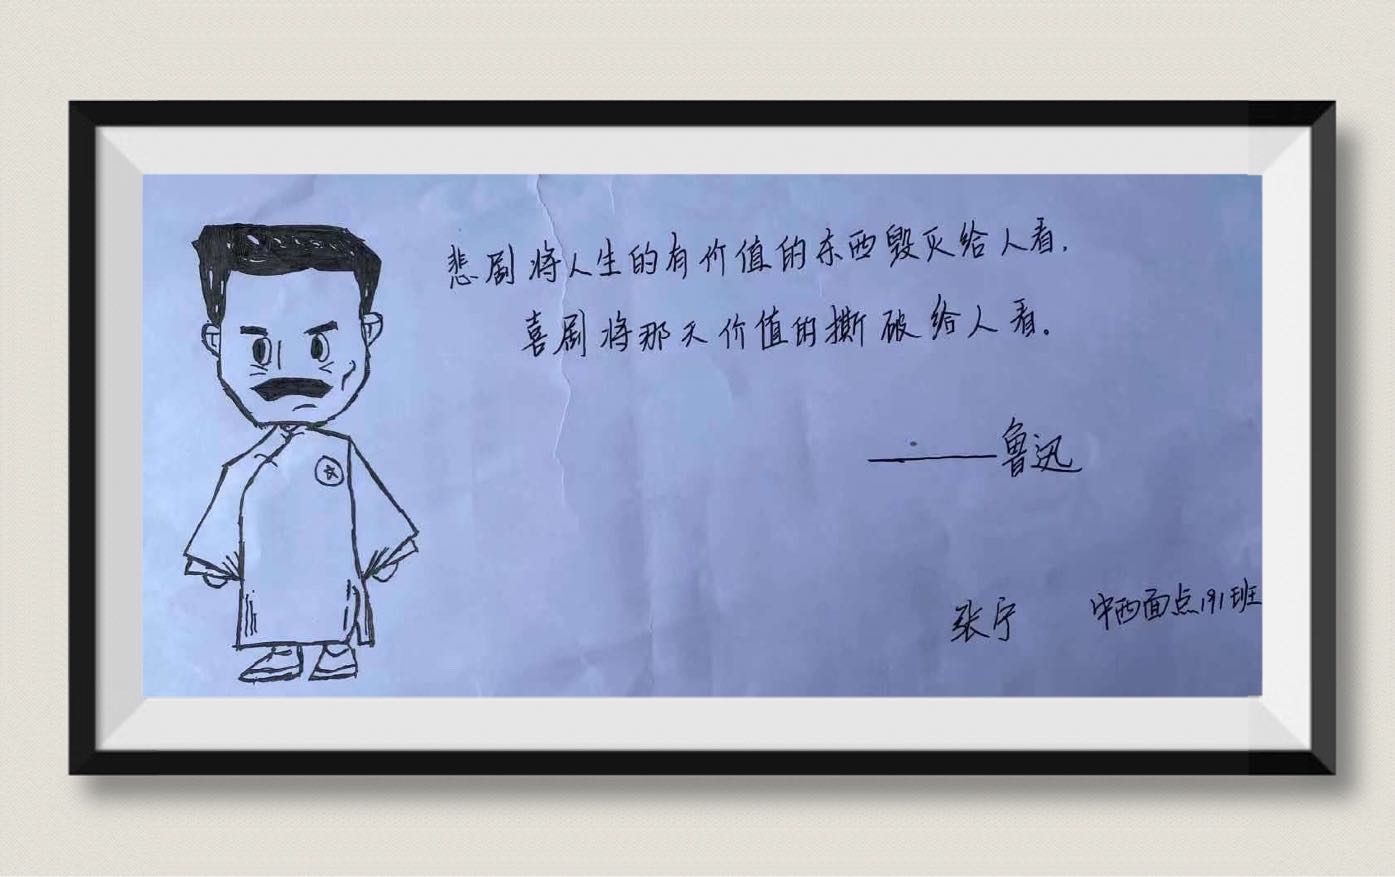 悲剧将人生的有价值的东西毁灭给人看.
喜剧将那无价值的撕破给人看.
——鲁迅
张宁 中西面点191班